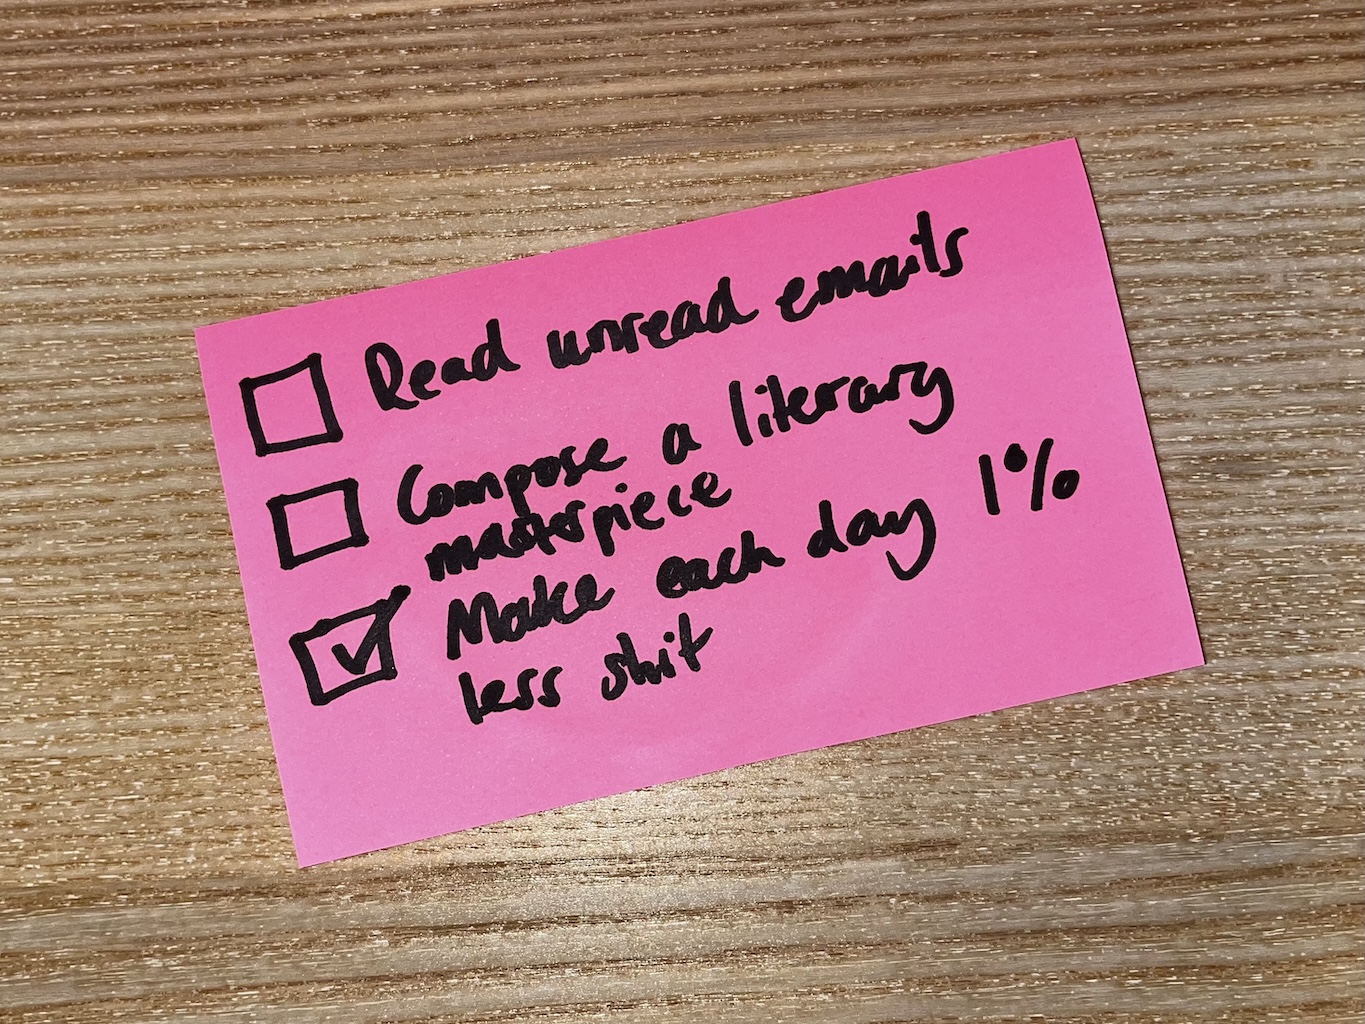 Read unread emails
Compose a literary
masterpiece
Make each day 1%
less shit